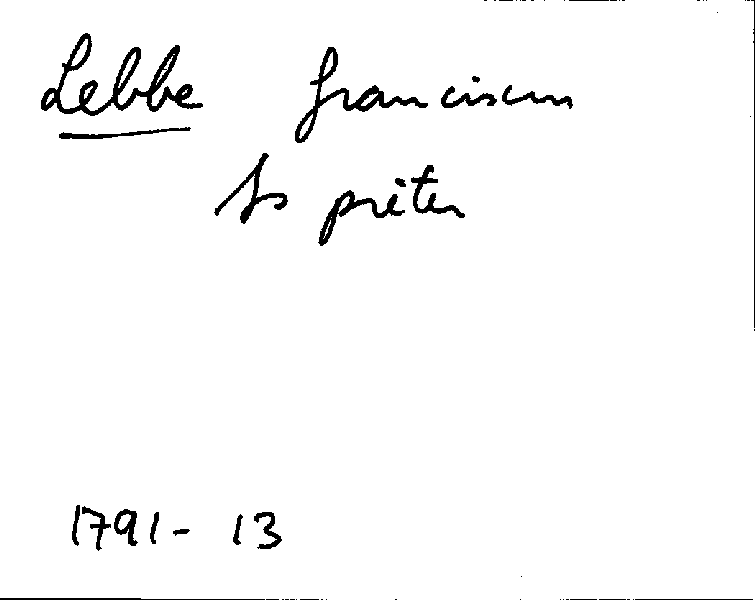 Lebbe franciscus
fs pieter
1791 - 13